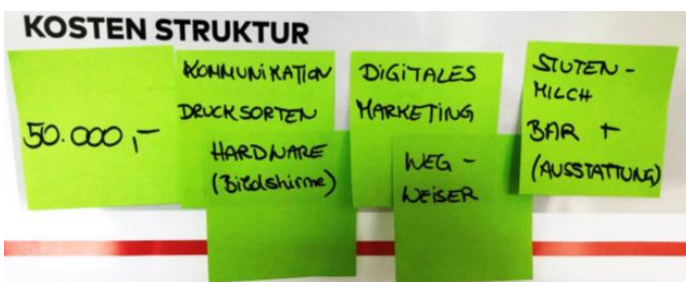 KOSTEN STRUKTUR
50.000,-
KOMMUNIKATION
DRUCKSORTEN
HARDWARE
(Bildshirme)
DIGITALES
MARKETING
WEG-
WEISER
STUTEN-
MILCH
BAR +
(AUSSTATTUNG)